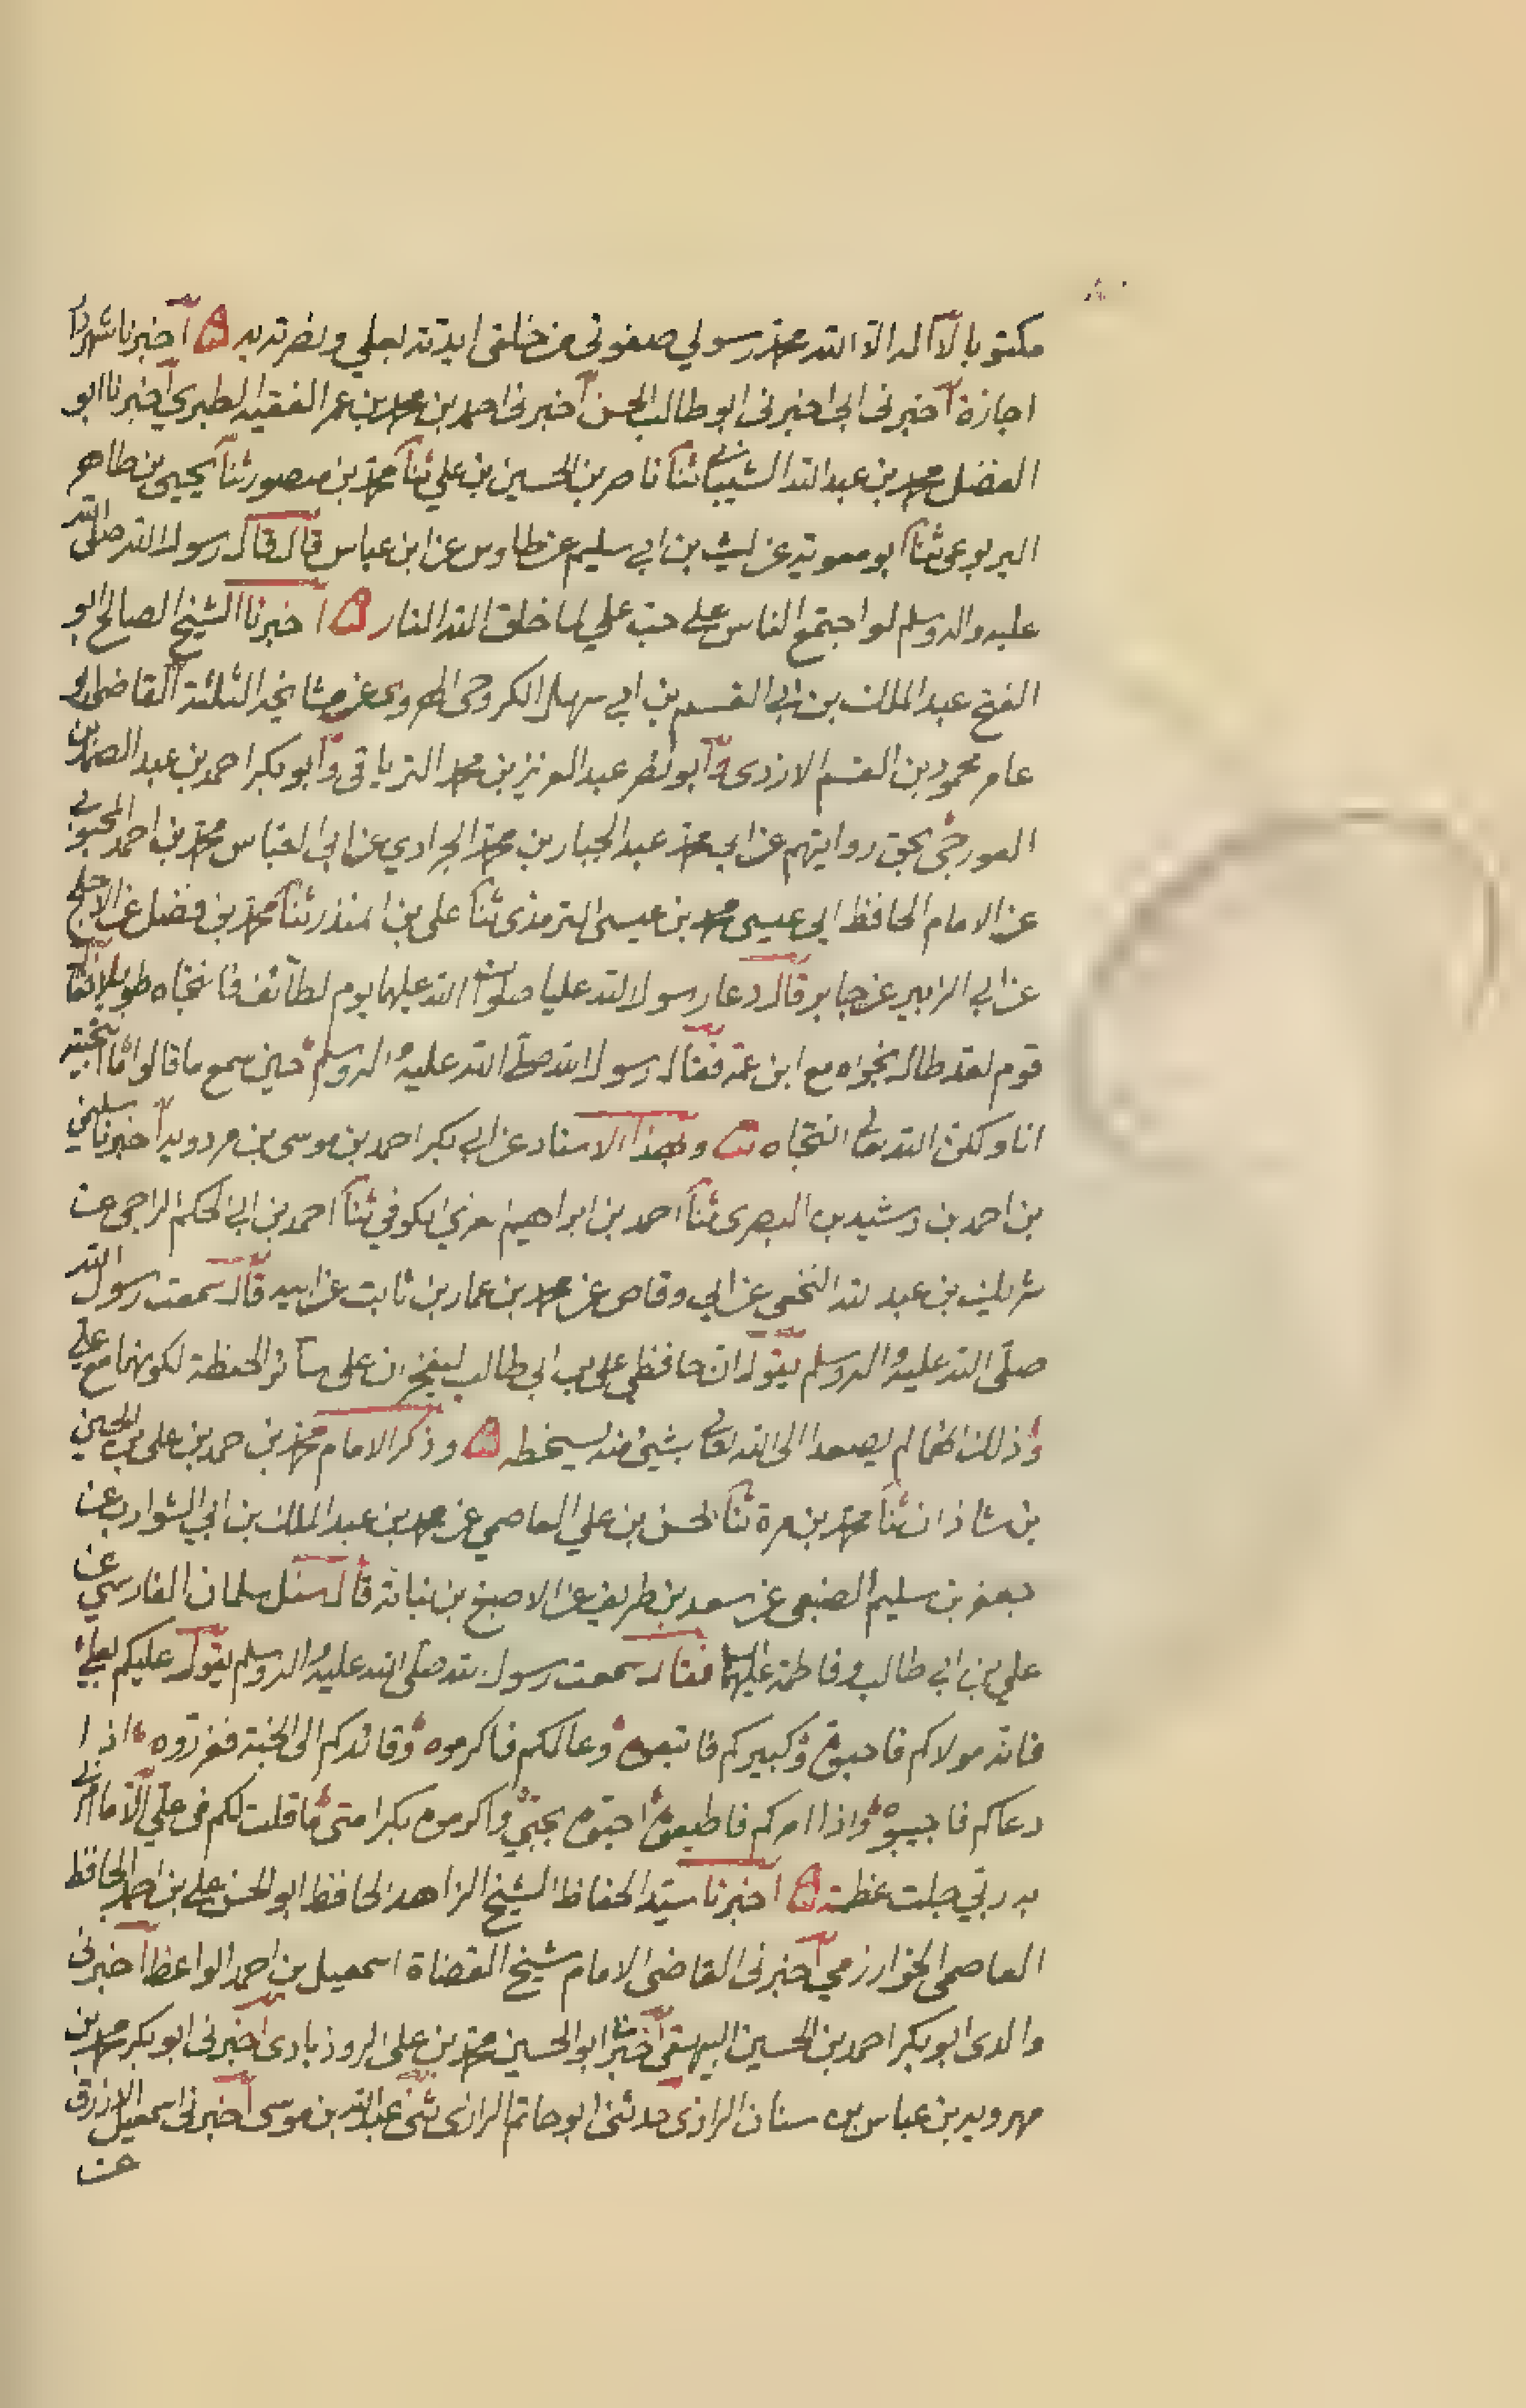 مكتوبا لا اله الا الله محمد رسولي صفوتي من خلقي ايدته بعلي ونصرته به اخبرنا شهردار
اجازة اخبرنى ابى اخبرنى ابو طالب الحسن اخبرنى احمد بن محمد بن عمر الفقيه الطبري اخبرنا ابو
الفضل محمد بن عبد الله الشيباني ثنا ناصر بن الحسين بن علي ثنا محمد بن منصور ثنا يحيى بن طاهر
اليربوعى ثنا ابو معوية عن ليث بن ابي سليم عن طاوس عن ابن عباس قال قال رسول الله صلى الله
عليه واله وسلم لو اجتمع الناس على حب علي لما خلق الله النار اخبرنا الشيخ الصالح ابو
الفتح عبد الملك بن ابي القسم بن ابي سهل الكروخى الهروى عن مشايخه الثلثة القاضى ابو
عامر محمود بن القسم الازدى وابو نصر عبد العزيز بن محمد الترياقى وابو بكر احمد بن عبد الصمد بن
الغورجى بحق روايتهم عن ابي محمد عبد الجبار بن محمد الجرادي عن ابى العباس محمد بن احمد المحبوبي
عن الامام الحافظ ابي عيسى محمد بن عيسى الترمذى ثنا على بن المنذر ثنا محمد بن فضل عن الاجلح
عن ابي الزبير عن جابر قال دعا رسول الله عليا صلوات الله عليهما يوم الطائف فانتجاه طويلا فقال
قوم لقد طال نجواه مع ابن عمه فقال رسول الله صلى الله عليه واله وسلم حين سمع ما قالوا ما انتجيته
انا ولكن الله تعالى انتجاه وبهذا الاسناد عن ابي بكر احمد بن موسى بن مردويه اخبرنا سليمن
بن احمد بن رشيد بن البصرى ثنا احمد بن ابراهيم الكوفي ثنا احمد بن ابى الحكم الراجى عن
شريك بن عبد الله النخعى عن ابي وقاص عن محمد بن عمار بن ثابت عن ابيه قال سمعت رسول الله
صلى الله عليه واله وسلم يقول ان حافظي على بن ابي طالب ليفخران على سائر الحفظة لكونهما مع علي
وذلك انهما لم يصعدا الى الله تعالى بشيئ منه يسخطه وذكر الامام محمد بن احمد بن على بن الحسين
بن شاذان ثنا محمد بن مرة ثنا الحسن بن علي العاصمي عن محمد بن عبد الملك بن ابي الشوارب عن
جعفر بن سليم الضبعى عن سعد بن طريف عن الاصبغ بن نباتة قال سئل سلمان الفارسي عن
علي بن ابي طالب وفاطمة عليهما السلام فقال سمعت رسول الله صلى الله عليه واله وسلم يقول عليكم بعلي
فانه مولاكم فاحبوه وكبيركم فاتبعوه وعالمكم فاكرموه وقائدكم الى الجنة فعززوه واذا
دعاكم فاجيبوه واذا امركم فاطيعوه احبوه بحبي واكرموه بكرامتي ما قلت لكم فى علي الا ما امرني
به ربي جلت عظمته اخبرنا سيد الحفاظ الشيخ الزاهد الحافظ ابو الحسن على بن احمد الحافظ
العاصمى الخوارزمي اخبرنى القاضى الامام شيخ القضاة اسمعيل بن احمد الواعظ اخبرنى
والدى ابو بكر احمد بن الحسين البيهقى اخبرنا ابو الحسين محمد بن على الروذبادى اخبرنى ابو بكر محمد بن
مهرويه بن عباس بن سنان الرازى حدثنى ابو حاتم الرازى ثنى عبد الله بن موسى اخبرنى اسمعيل الازرق
عن